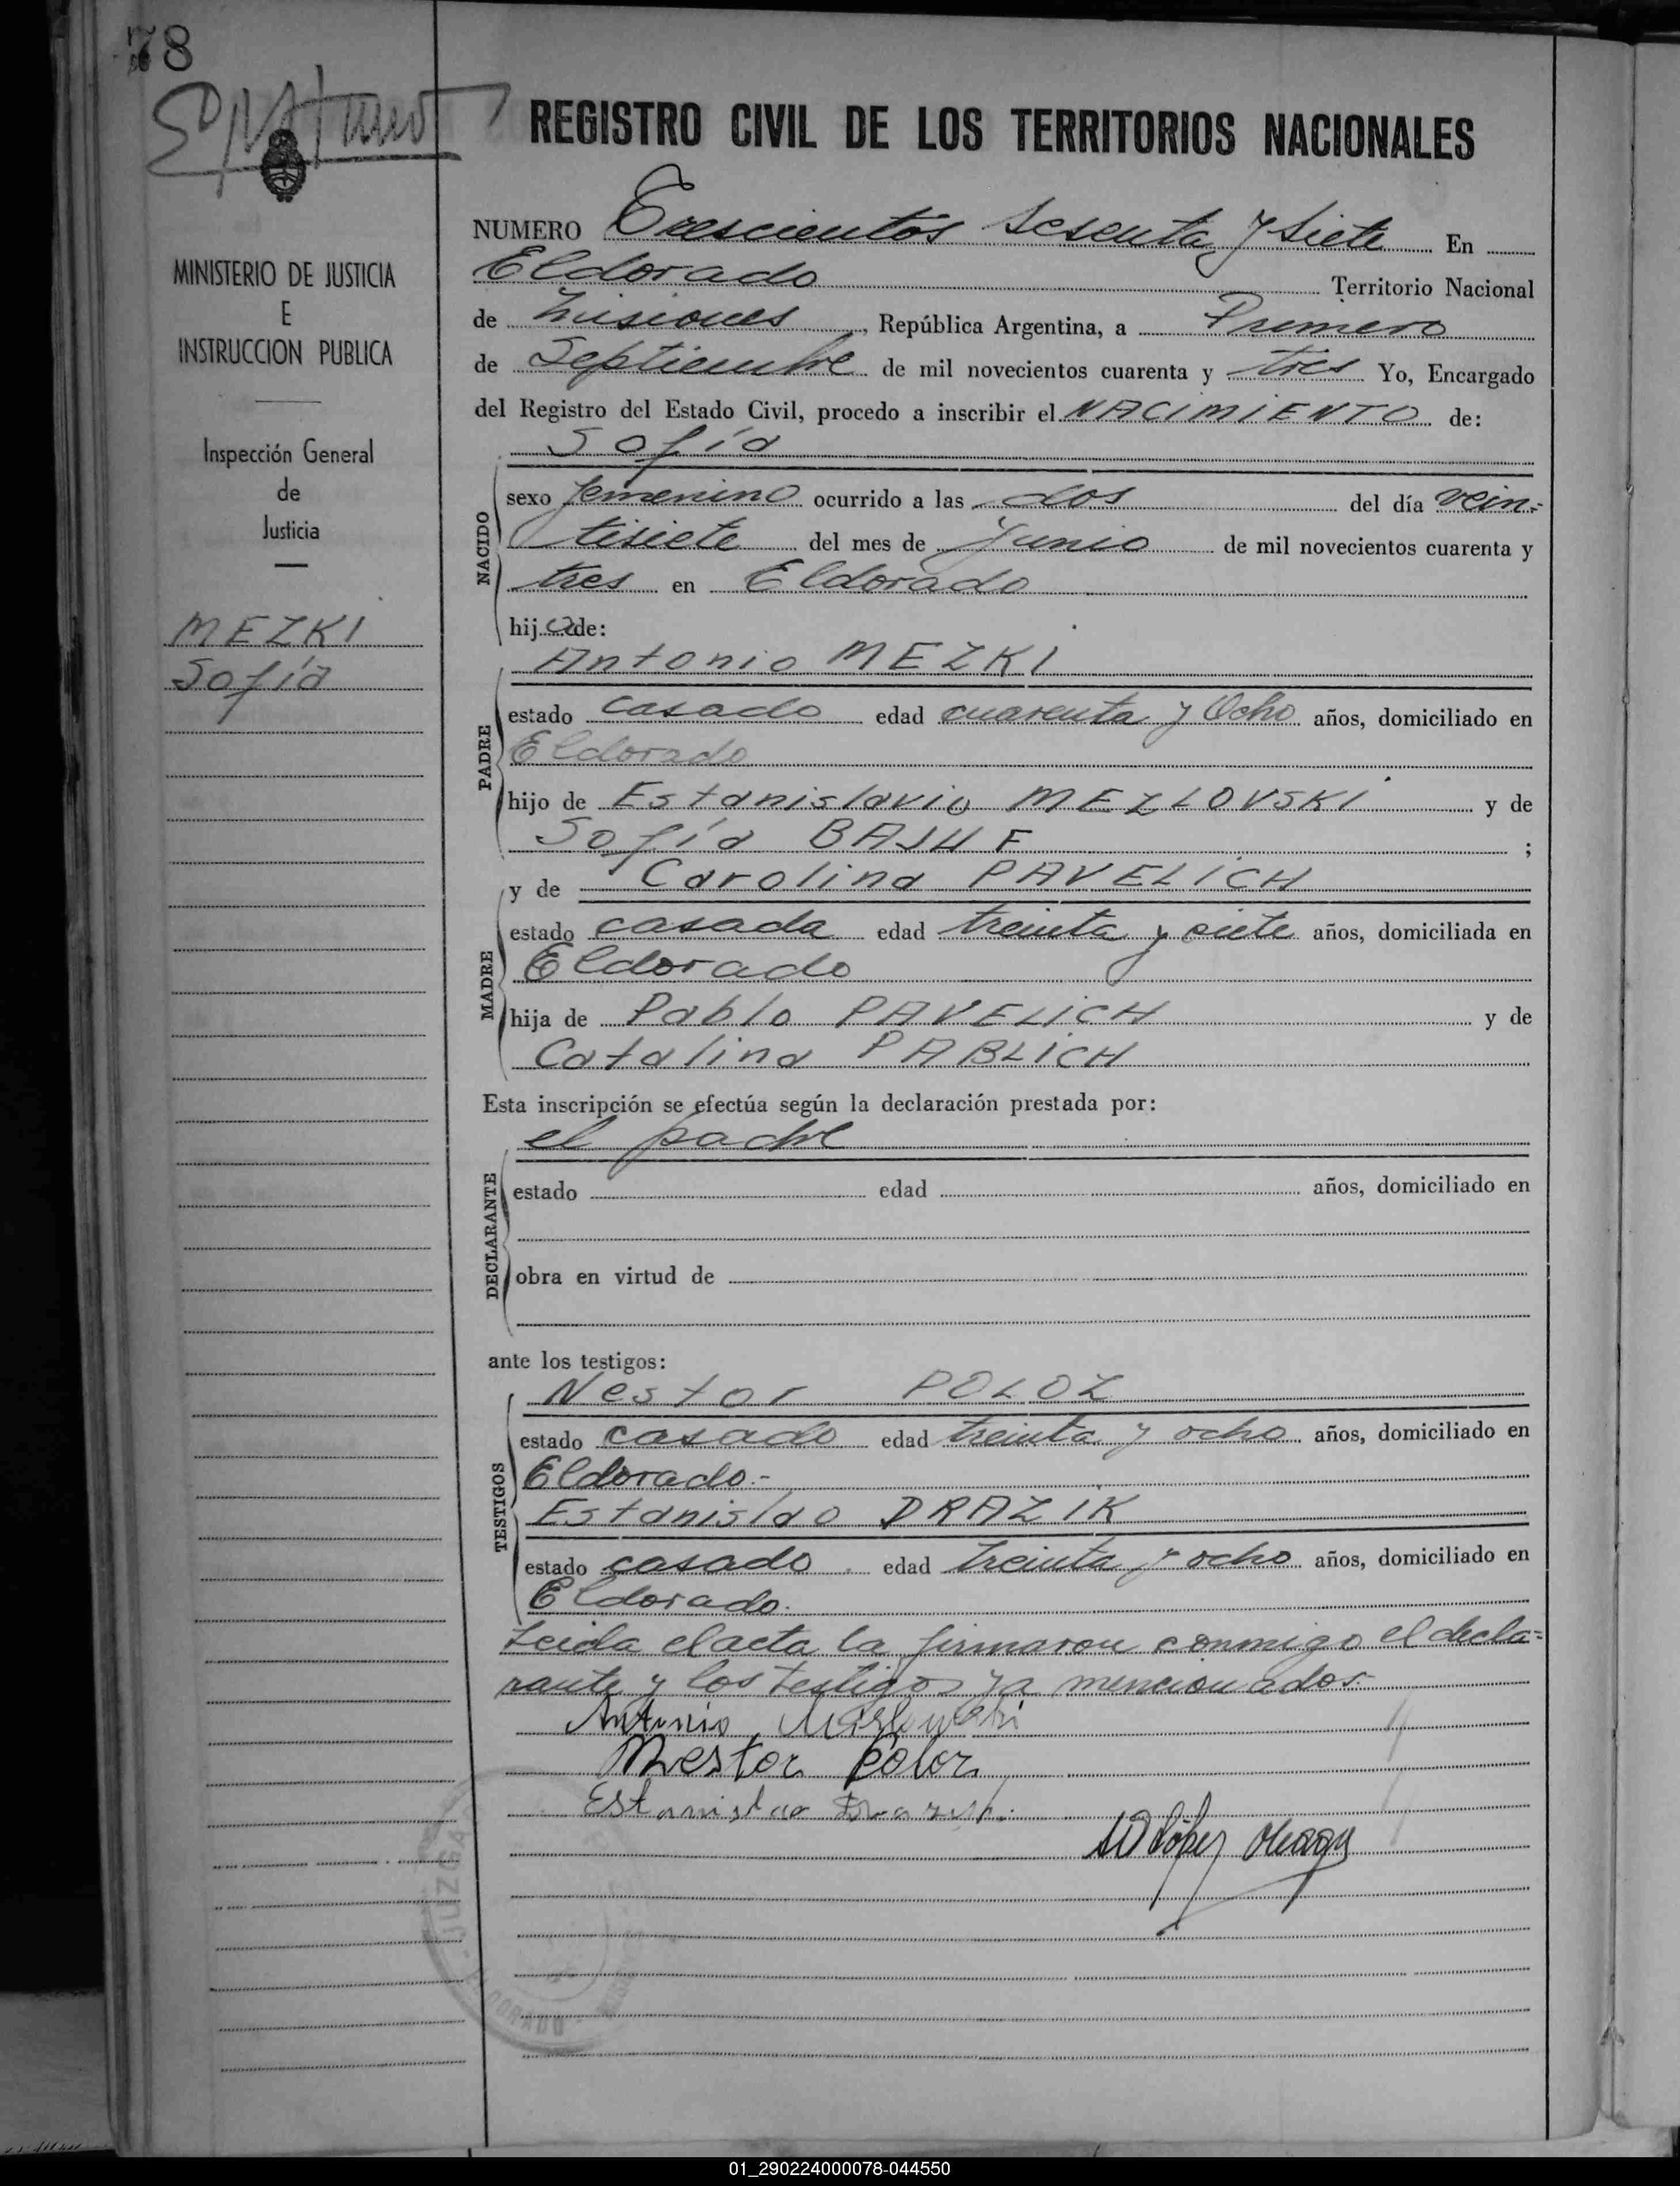 78
REGISTRO CIVIL DE LOS TERRITORIOS NACIONALES
MINISTERIO DE JUSTICIA
E
INSTRUCCION PUBLICA
Inspección General
de
Justicia
MEZKI
Sofía
NUMERO Trescientos Sesenta y Siete En
Eldorado Territorio Nacional
de Misiones, República Argentina, a Primero
de Septiembre de mil novecientos cuarenta y tres Yo, Encargado
del Registro del Estado Civil, procedo a inscribir el NACIMIENTO de:
Sofía
NACIDO
sexo femenino ocurrido a las dos del día vein-
tisiete del mes de Junio de mil novecientos cuarenta y
tres en Eldorado
hija de:
Antonio MEZKI
PADRE
estado casado edad cuarenta y Ocho años, domiciliado en
Eldorado
hijo de Estanislavio MEZLOVSKI y de
Sofía ;
y de Carolina PAVELICH
MADRE
estado casada edad treinta y siete años, domiciliada en
Eldorado
hija de Pablo PAVELICH y de
Catalina PABLICH
Esta inscripción se efectúa según la declaración prestada por:
el padre
DECLARANTE
estado edad años, domiciliado en
obra en virtud de
ante los testigos:
Nestor POLOZ
TESTIGOS
estado casado edad treinta y ocho años, domiciliado en
Eldorado.-
Estanislao DRAZIK
estado casado edad treinta y ocho años, domiciliado en
Eldorado.
Leida el acta la firmaron conmigo el decla-
rante y los testigos ya mencionados.
Antonio
Nestor Poloz
Estanislao
López
01_290224000078-044550